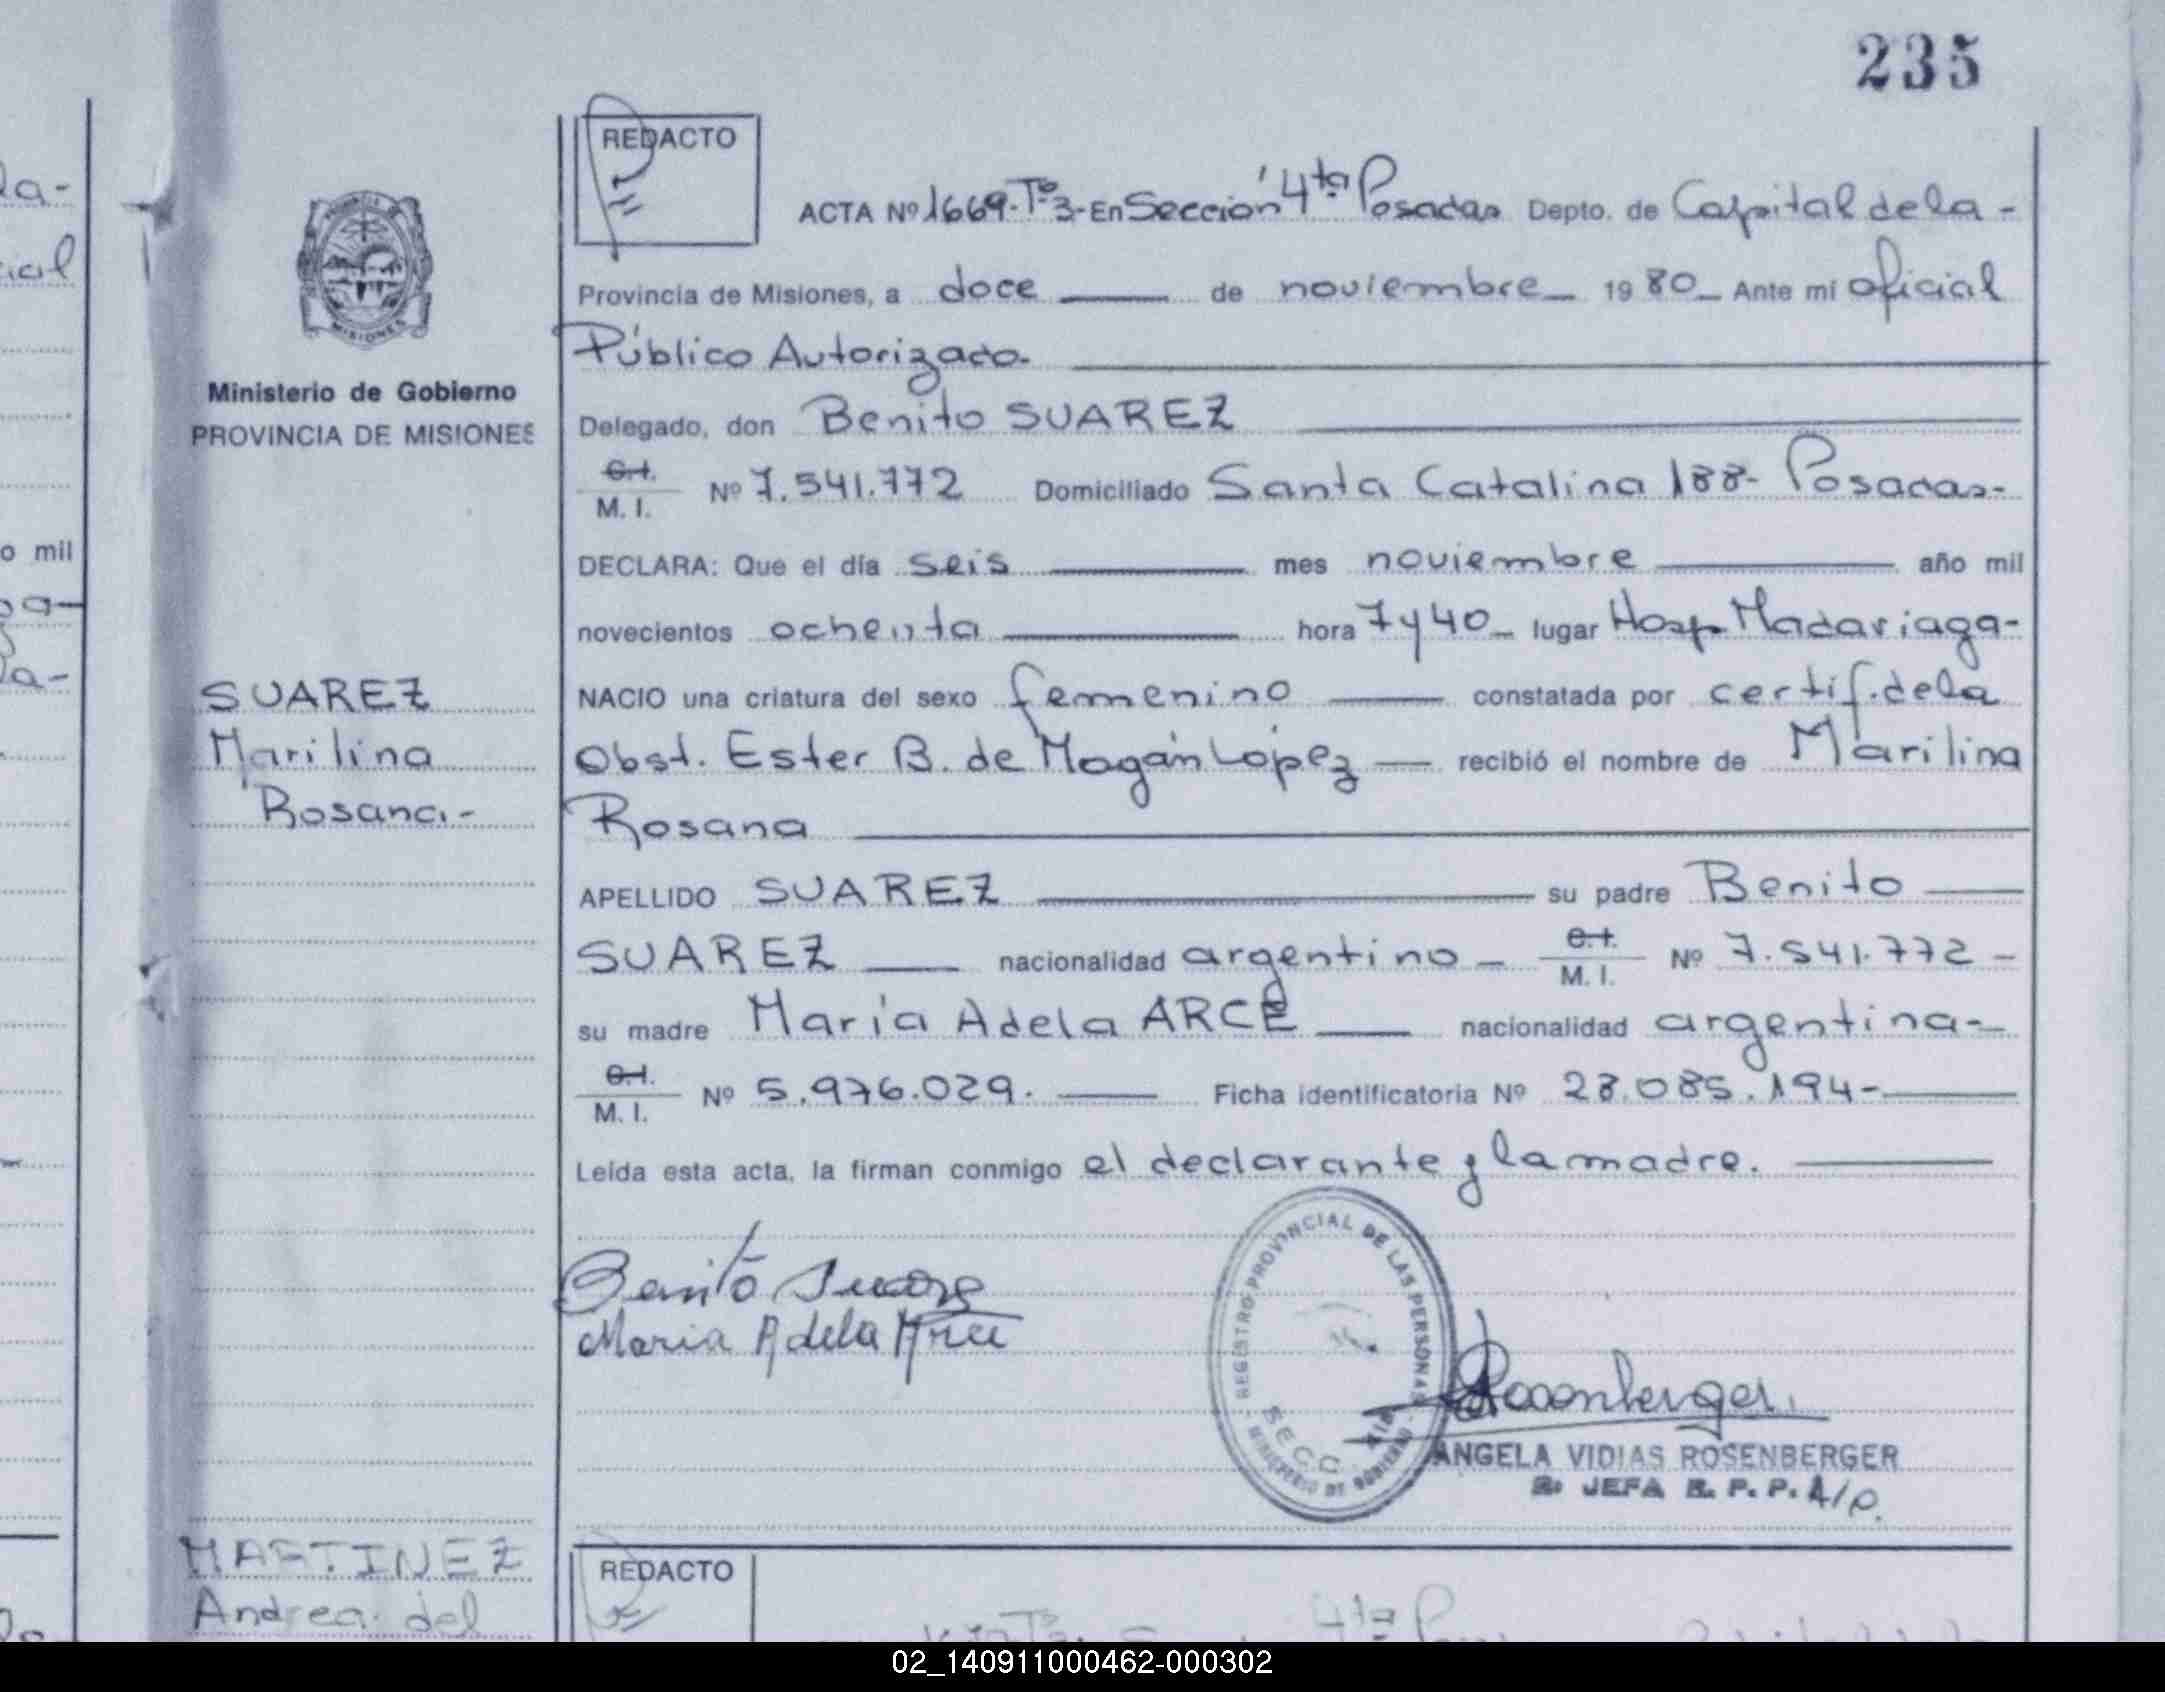 235
REDACTO
ACTA Nº 1669-Tº3-En Sección 4ta Posadas Depto. de Capital de la-
Provincia de Misiones, a doce de noviembre 1980 Ante mí oficial
Público Autorizado.
Delegado, don Benito SUAREZ
C.I. M. I. Nº 7.541.772 Domiciliado Santa Catalina 188- Posadas-
DECLARA: Que el día seis mes noviembre año mil
novecientos ochenta hora 7 y 40 lugar Hosp Madariaga-
NACIO una criatura del sexo femenino constatada por certif. de la
Obst. Ester B. de Magán López recibió el nombre de Marilina
Rosana
APELLIDO SUAREZ su padre Benito
SUAREZ nacionalidad argentino C.I. M. I. Nº 7.541.772-
su madre María Adela ARCE nacionalidad argentina-
C.I. M. I. Nº 5.976.029. Ficha identificatoria Nº 28.085.194-
Leída esta acta, la firman conmigo el declarante y la madre.
Benito Suarez
Maria Adela Arce
REGISTRO PROVINCIAL DE LAS PERSONAS
SECC. 4ta
MINISTERIO DE GOBIERNO
Rosenberger
ANGELA VIDIAS ROSENBERGER
JEFA R. P. P. A/C.
PROVINCIA DE
MISIONES
Ministerio de Gobierno
PROVINCIA DE MISIONES
SUAREZ
Marilina
Rosana-
MARTINEZ
Andrea del
REDACTO
4ta
la-
cial
o mil
ga-
la-
02_140911000462-000302